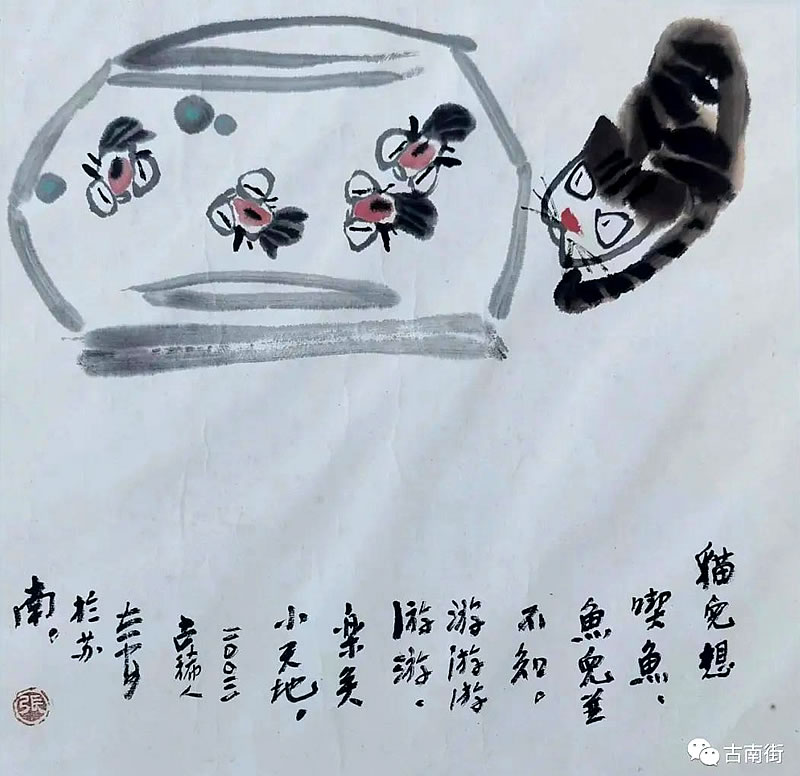 貓兒想
喫魚、
魚兒並
不知。
游游游
游游。
楽矣
小天地。
二〇〇三
古稀人
於苏
南。
張
古南街